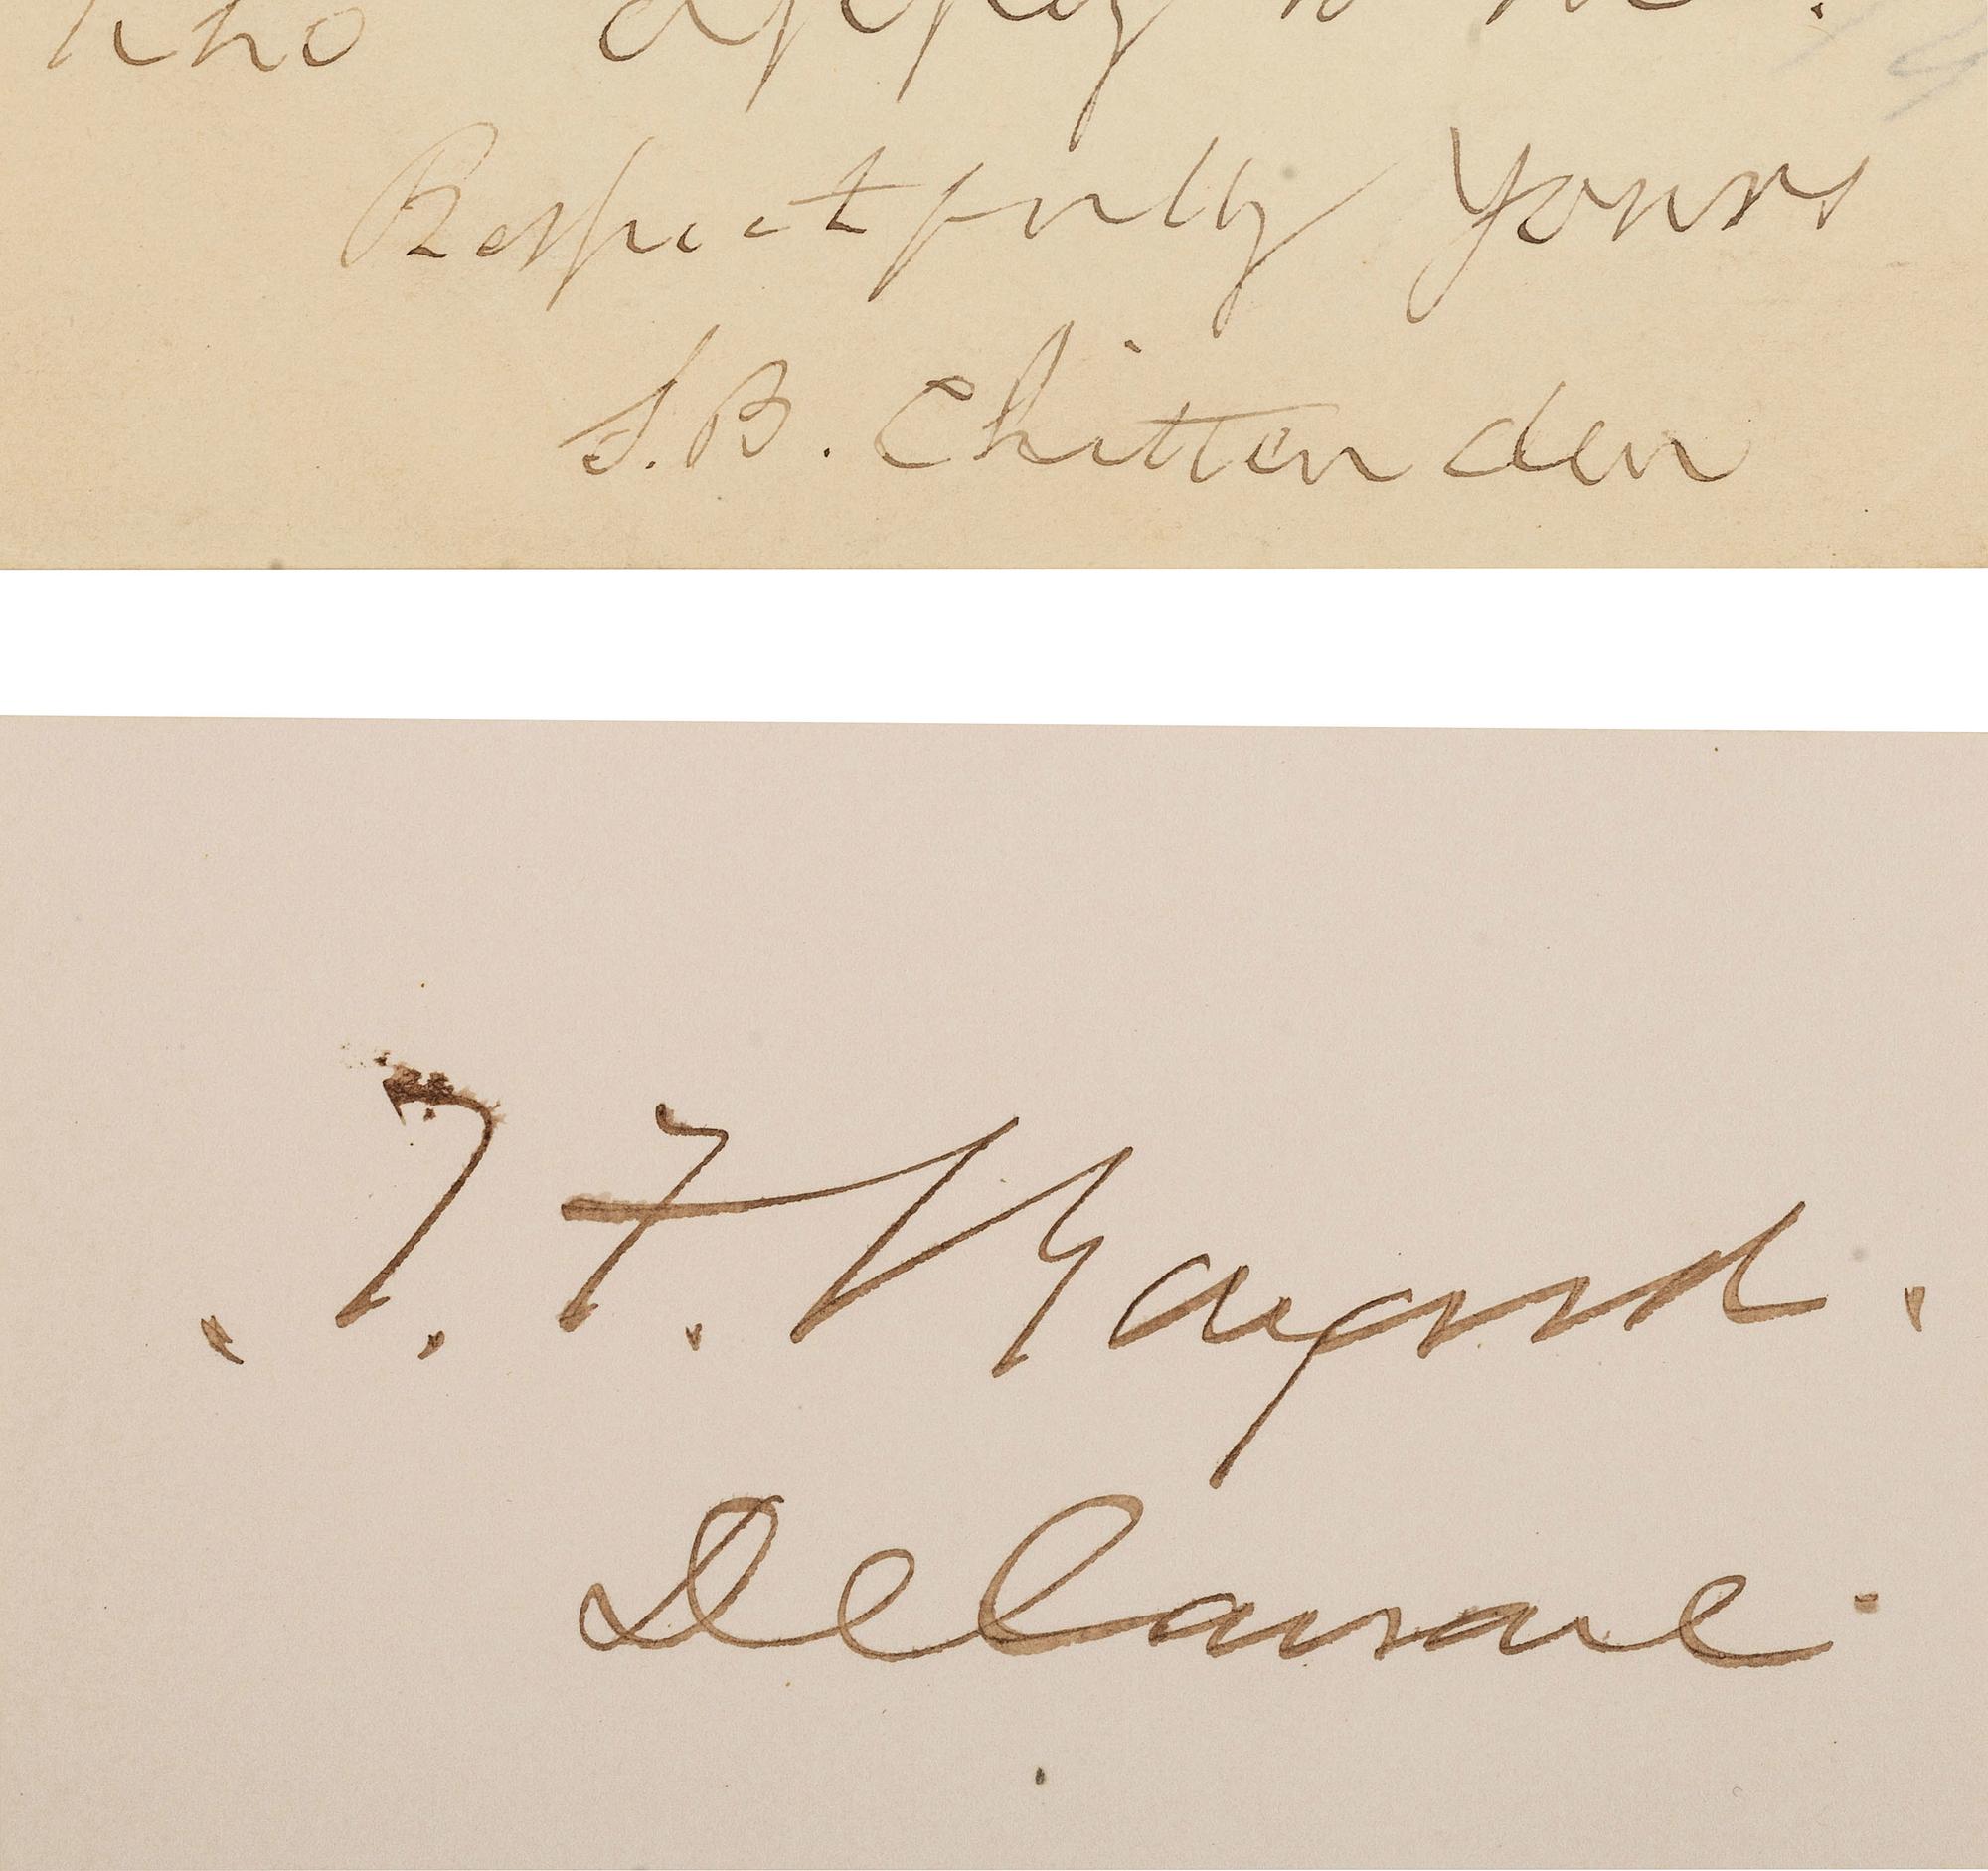 who apply to me.
Respectfully Yours
S. B. Chittenden
T. F. Bayard.
Delaware.